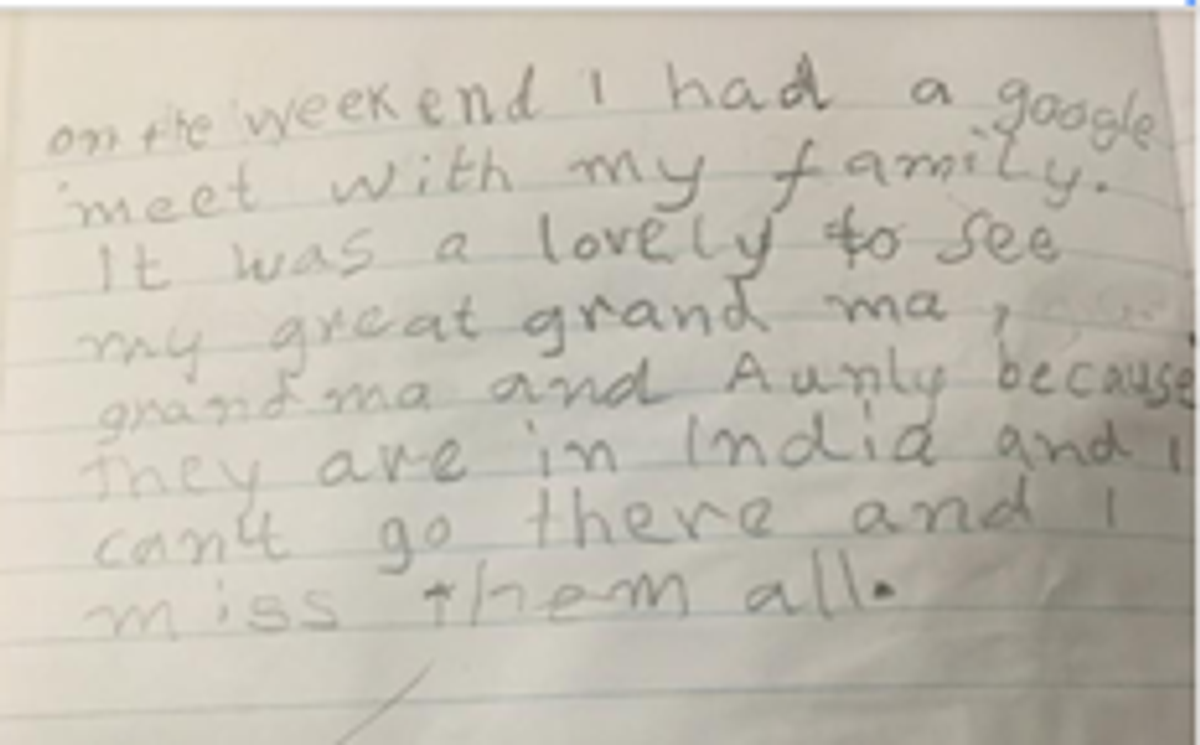 on the weekend I had a google
meet with my family.
It was a lovely to see
my great grand ma,
grandma and Aunly because
they are in India and I
can't go there and I
miss them all.